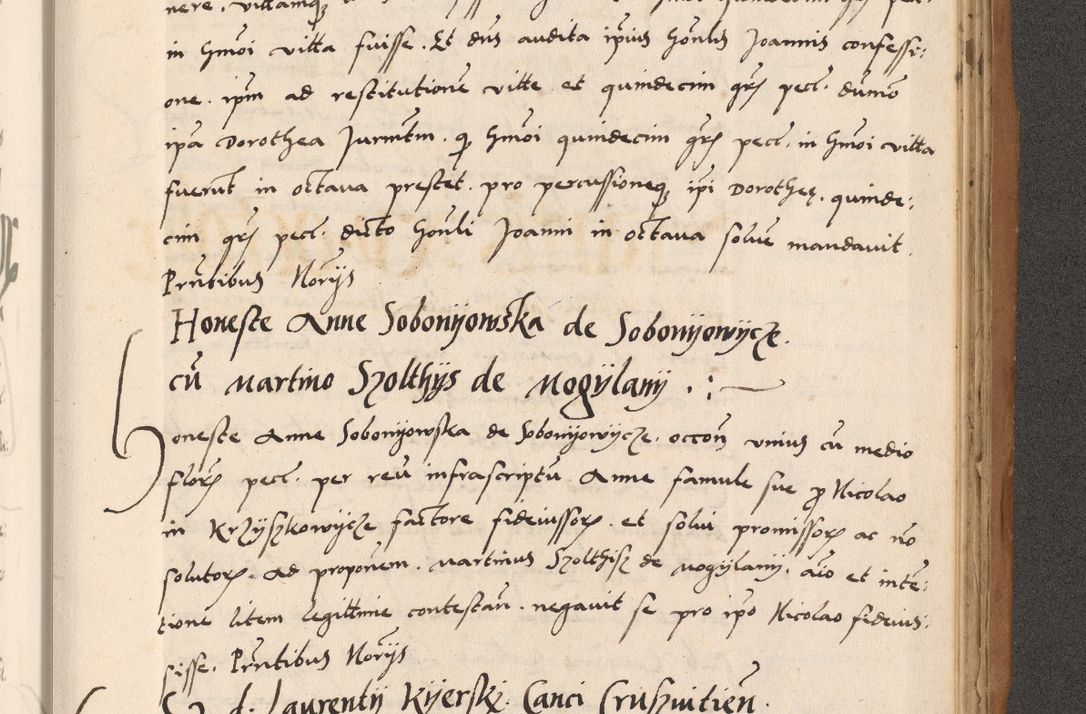 nere. villamqꝫ
in hmōi villa fuisse. Et dns audita ipius honlis Joannis confessi:
one. ipm ad restitutione ville et quindecim grꝭ pecc. dumō
ipa Dorothea Jurmtm. qꝫ hmōi quindecim grꝭ pecc. in hmōi villa
fuerūt in octaua prestet. pro percussioneqꝫ ipi Dorotheę. quinde:
cim grꝭ pecc. dicto honli Joanni in octaua soluē mandauit.
Prntibus Norijs
Honeste Anne Sobonijowska de Sobonijowijcze.
cū Martino Szolthijs de Mogijlanij . :
Honeste Anne Sobonijowska de Sobonijowijcze. occon vnius cū medio
florꝫ pecc. per reū infrascriptū Anne famule sue ꝓ Nicolao
in Krzijszkowijcze factore fideiussorꝫ. et solui promissorꝫ ac nō
solutorꝫ. Ad proponem. Martinus Szolthisz de Mogijlanij. aīo et intē:
tione litem legittime contestan. negauit se pro ipo Nicolao fideius:
sisse. Prntibus Norijs
d. Laurentij Kijerskj. Canci Crushuitien.